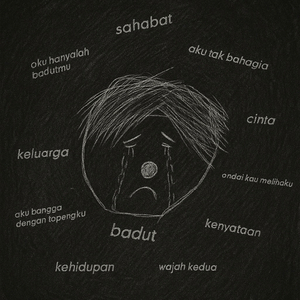 sahabat
aku hanyalah
badutmu
aku tak bahagia
cinta
keluarga
andai kau melihaku
aku bangga
dengan topengku
badut
kenyataan
kehidupan
wajah kedua